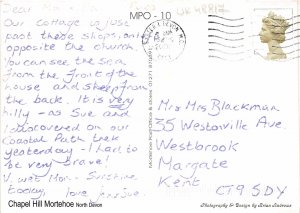 Dear
MPO - 10
Our cottage is just
past these shops, and
opposite the church.
You can see the sea
from the front of the
house and sheep from
the back. It is very
hilly - as Sue and
I discovered on our
Coastal Path trek
yesterday - I had to
be very brave!
V. wet Mon - Sunshine
today, love
Mr & Mrs Blackman
35 Westonville Ave.
Westbrook
Margate
Kent
CT9 5DY
Chapel Hill Mortehoe North Devon
Photography & Design by Brian Andrews